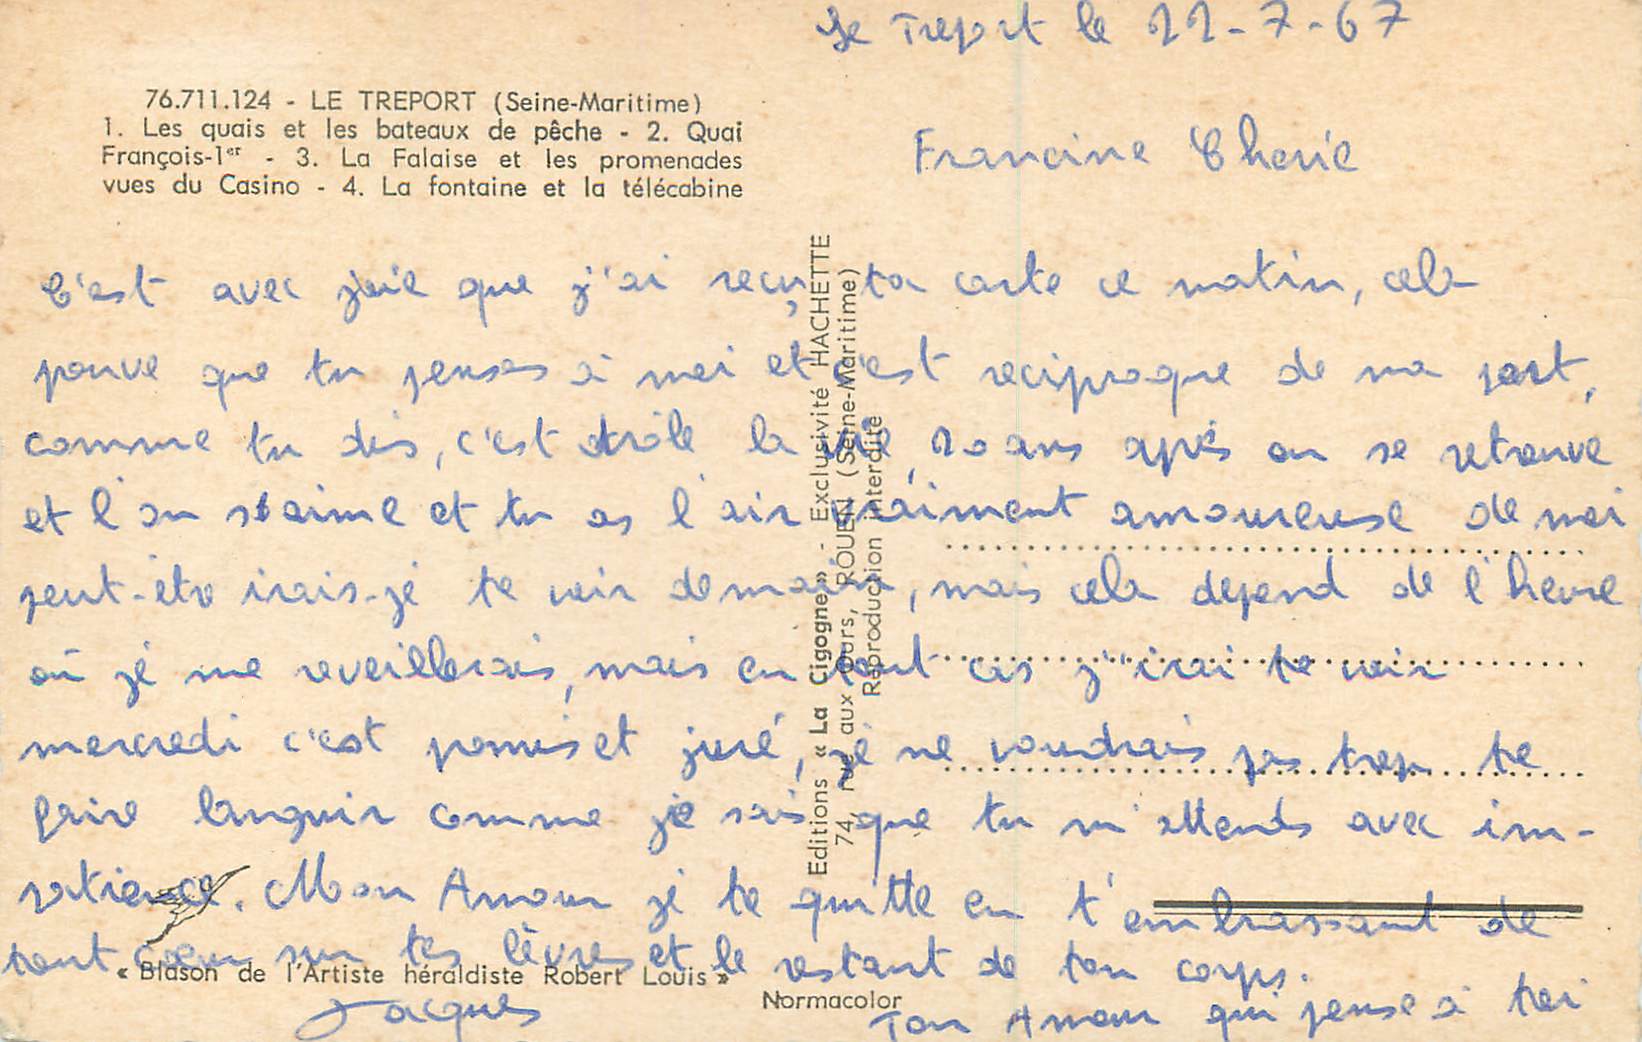 Le Treport le 22-7-67
76.711.124 - LE TREPORT (Seine-Maritime)
1. Les quais et les bateaux de pêche - 2. Quai
François-1er - 3. La Falaise et les promenades
vues du Casino - 4. La fontaine et la télécabine
Francine Cherie
C'est avec joie que j'ai reçu ta carte ce matin, cela
prouve que tu penses à moi et c'est reciproque de ma part,
comme tu dis, c'est drôle la vie, 20 ans après on se retrouve
et l'on s'aime et tu as l'air vraiment amoureuse de moi
peut-etre irais-je te voir demain, mais cela depend de l'heure
où je me reveillerais, mais en tout cas j'irai te voir
mercredi c'est promis et juré, je ne voudrais pas trop te
faire languir comme je sais que tu m'attends avec im-
patience. Mon Amour je te quitte en t'embrassant de
tout cœur sur tes lèvres et le restant de ton corps.
Jacques
Ton Amour qui pense à toi
Editions « La Cigogne » - Exclusivité HACHETTE
74, rue aux Ours, ROUEN (Seine-Maritime)
Reproduction interdite
« Blason de l'Artiste héraldiste Robert Louis »
Normacolor